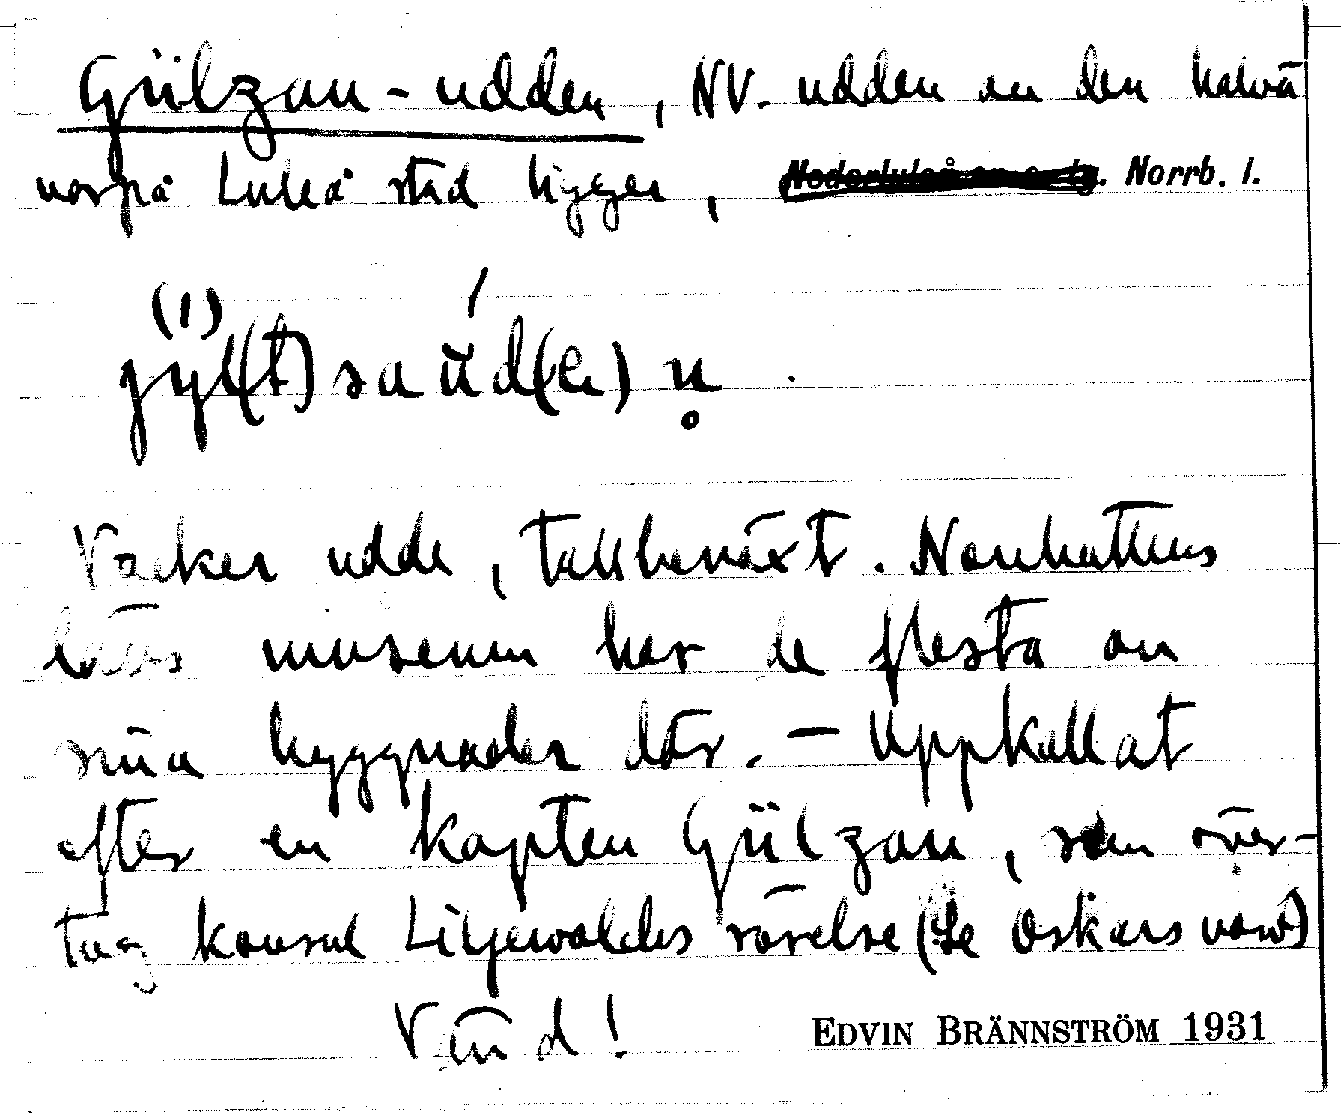 Gülzau-udden, NV. udden av den halvö
varpå Luleå stad ligger, Norrb. l.
Vacker udde, tallbeväxt. Norrbottens
läns museum har de flesta av
sina byggnader där. — Uppkallat
efter en kapten Gülzau, som över-
tog konsul Liljewalchs rörelse (Se Oskarsvarv)
Vänd!
EDVIN BRÄNNSTRÖM 1931